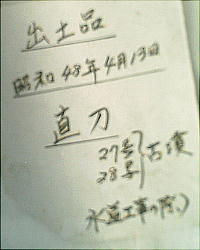 出土品
昭和48年4月13日
直刀
27号
28号
古墳
水道工事の際、)